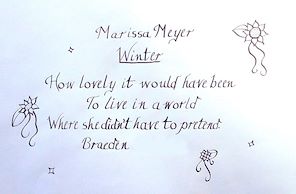 Marissa Meyer
Winter
How lovely it would have been
To live in a world
Where she didn't have to pretend
Braeden